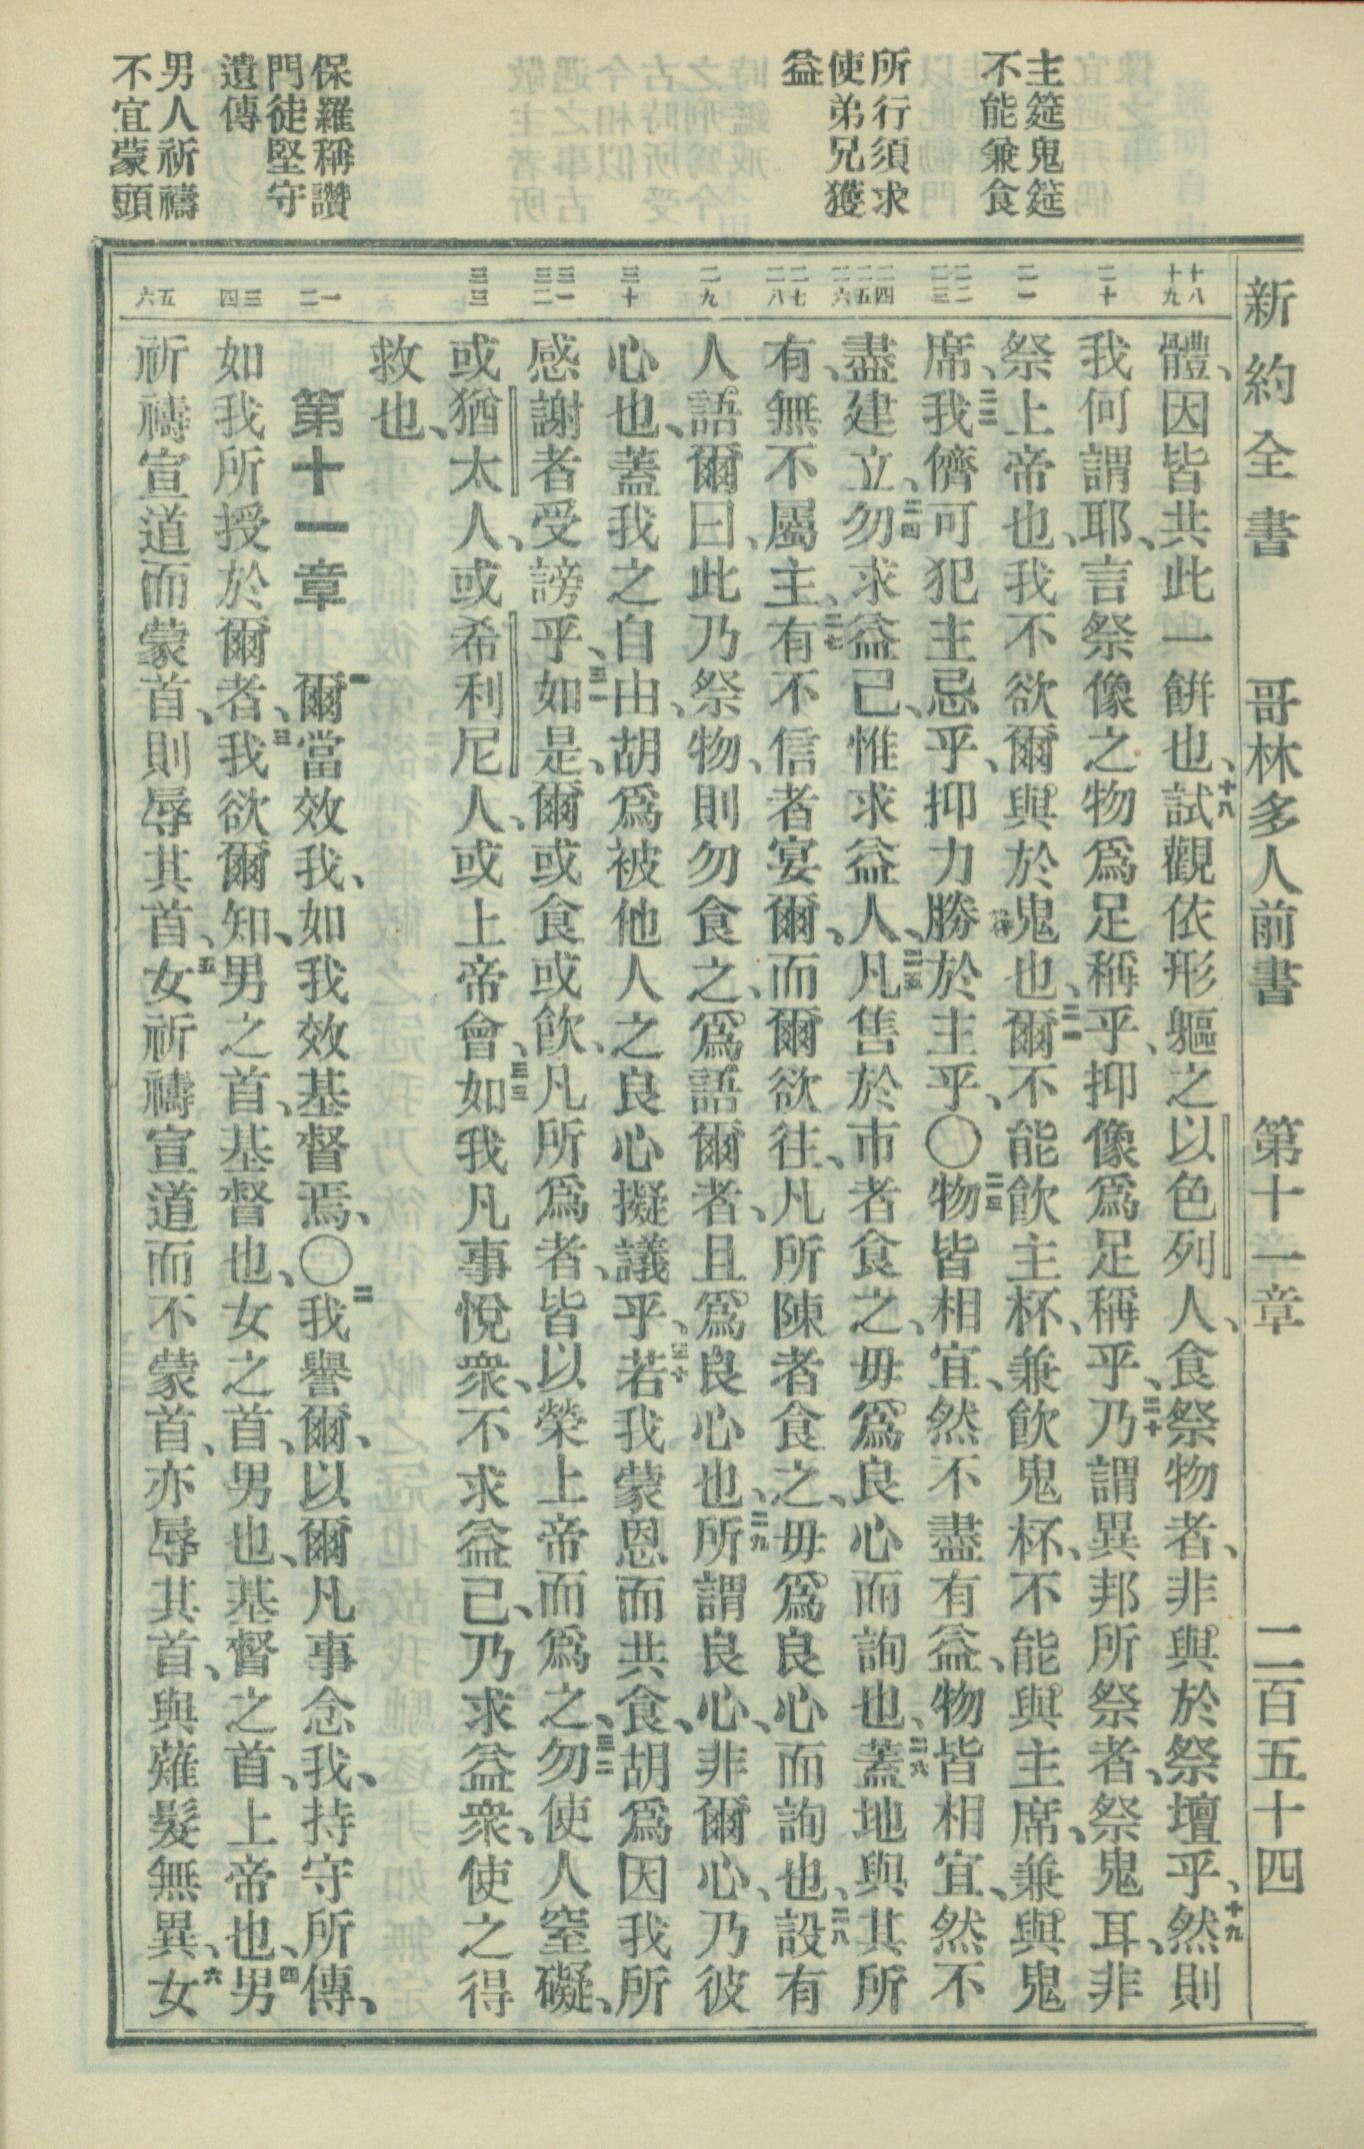 新約全書　哥林多人前書　第十一章　二百五十四
主筵鬼筵
不能兼食
所行須求
使弟兄獲
益
保羅稱讚
門徒堅守
遺傳
男人祈禱
不宜蒙頭
十八 十九
二十
二一
二二 二三
二四 二五 二六
二七 二八
二九
三十
三一 三二
三三
一 二
三 四
五 六
體、因皆共此一餅也、十八試觀依形軀之以色列人、食祭物者、非與於祭壇乎、十九然則
我何謂耶、言祭像之物爲足稱乎、抑像爲足稱乎、二十乃謂異邦所祭者、祭鬼耳、非
祭上帝也、我不欲爾與於鬼也、二一爾不能飲主杯、兼飲鬼杯、不能與主席、兼與鬼
席、二二我儕可犯主忌乎、抑力勝於主乎、〇二三物皆相宜、然不盡有益、物皆相宜、然不
盡建立、二四勿求益己、惟求益人、二五凡售於市者食之、毋爲良心而詢也、二六蓋地與其所
有、無不屬主、二七有不信者宴爾、而爾欲往、凡所陳者食之、毋爲良心而詢也、二八設有
人語爾曰、此乃祭物、則勿食之、爲語爾者、且爲良心也、二九所謂良心、非爾心、乃彼
心也、蓋我之自由、胡爲被他人之良心擬議乎、三十若我蒙恩而共食、胡爲因我所
感謝者受謗乎、三一如是、爾或食或飲、凡所爲者、皆以榮上帝而爲之、三二勿使人窒礙、
或猶太人、或希利尼人、或上帝會、三三如我凡事悅衆、不求益己、乃求益衆、使之得
救也、
第十一章　一爾當效我、如我效基督焉、〇二我譽爾、以爾凡事念我、持守所傳、
如我所授於爾者、三我欲爾知、男之首、基督也、女之首、男也、基督之首、上帝也、四男
祈禱宣道而蒙首、則辱其首、五女祈禱宣道而不蒙首、亦辱其首、與薙髮無異、六女